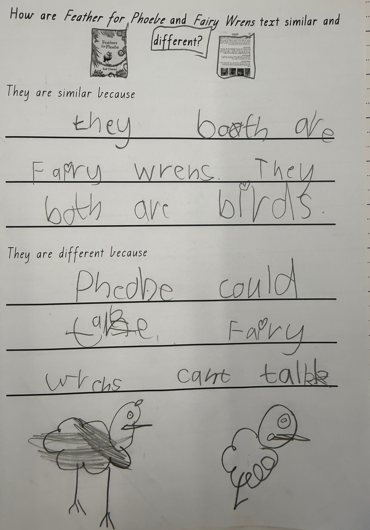 How are Feather for Phoebe and Fairy Wrens text similar and
different?
They are similar because
they booth are
Fairy wrens. They
both are birds.
They are different because
Phoebe could
talke. Fairy
wrens cant talk